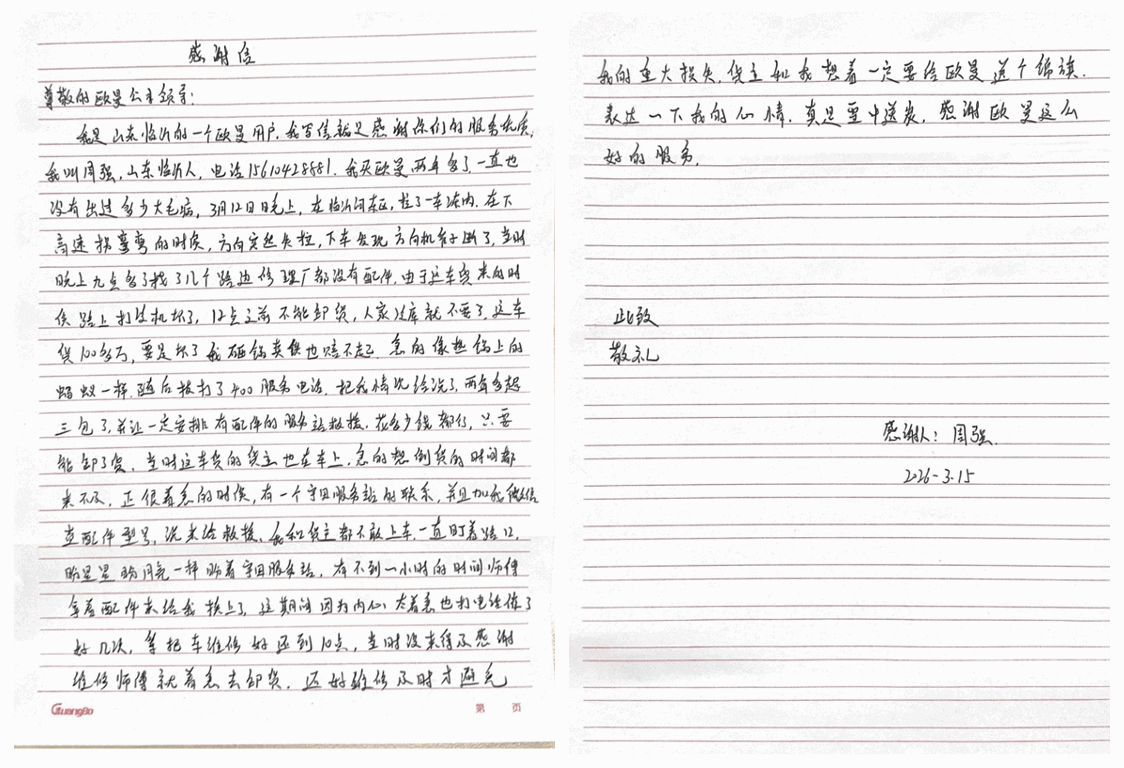 感谢信
尊敬的欧曼公司领导：
我是山东临沂的一个欧曼用户，我写信就是感谢你们的服务优质，
我叫周强，山东临沂人，电话15610428881。我买欧曼两年多了，一直也
没有出过多少大毛病，3月12日晚上，在临沂河东区，拉了一车冻肉，在下
高速拐弯弯的时候，方向突然失控，下车发现方向机管子断了，当时
晚上九点多了找了几个路边修理厂都没有配件，由于这车货来的时
候路上打冷机坏了，12点之前不能卸货，人家过库就不要了，这车
货100多万，要是坏了我砸锅卖铁也赔不起，急的像热锅上的
蚂蚁一样，随后拨打了400服务电话，把我情况给说了，两年多超
三包了，并让一定安排有配件的服务站救援，花多少钱都行，只要
能卸了货，当时这车货的货主也在车上，急的想倒货的时间都
来不及，正很着急的时候，有一个宇田服务站的联系，并且加我微信
查配件型号，说来给救援，我和货主都不敢上车，一直盯着路口，
盼星星盼月亮一样盼着宇田服务站，在不到一小时的时间师傅
拿着配件来给我换上了，这期间因为内心太着急也打电话催了
好几次，等把车维修好还到10点，当时没来得及感谢
维修师傅就着急去卸货，还好维修及时才避免
GuangBo
第 页
我的重大损失，货主和我想着一定要给欧曼送个锦旗，
表达一下我的心情，真是雪中送炭，感谢欧曼这么
好的服务，
此致
敬礼
感谢人：周强
2026-3.15